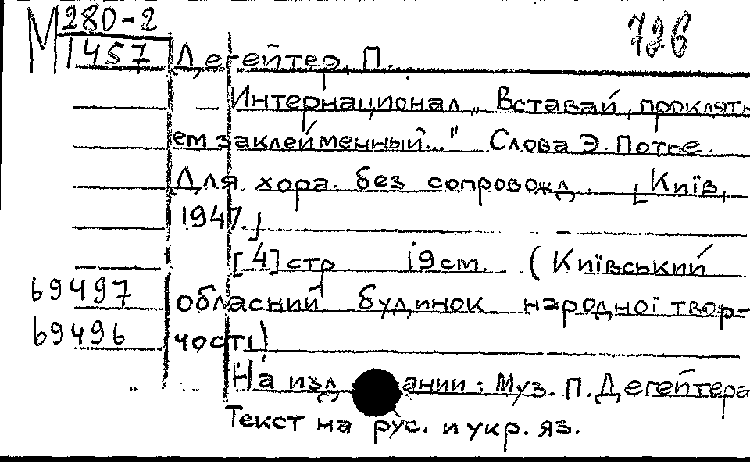 М 280-2
1457
726
Дегейтер, П.
Интернационал „ Вставай, проклять
ем заклейменный..." Слова Э. Потье.
Для хора без сопровожд. [Київ,
1947.]
[4] стр 19см. (Київський
69497 обласний будинок народної твор-
69496 чості)
На издании: Муз. П. Дегейтера
Текст на рус. и укр. яз.